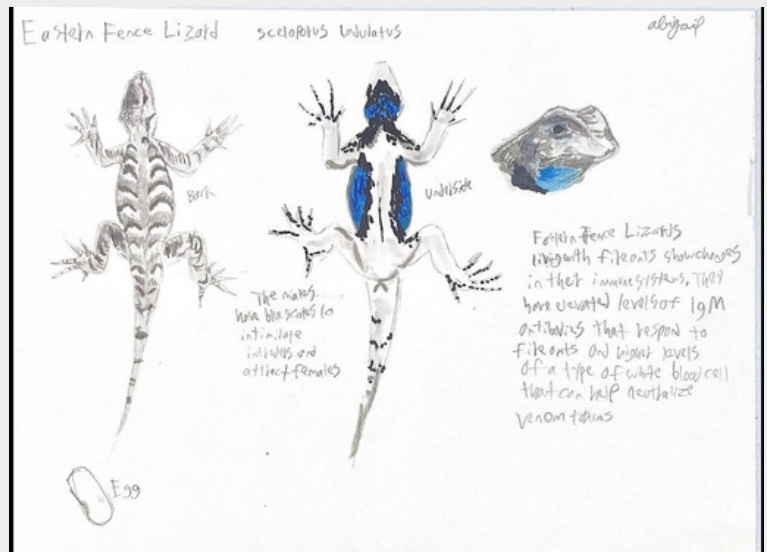 Eastern Fence Lizard
sceloporus undulatus
abigail
Back
underside
The males
have blue scales to
intimidate
intruders and
attract females
Eastern Fence Lizards
living with fire ants show changes
in their immune systems. They
have elevated levels of IgM
antibodies that respond to
fire ants and higher levels
of a type of white blood cell
that can help neutralize
venom toxins
Egg